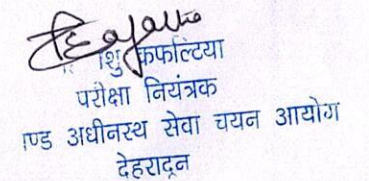 शु कफल्टिया
परीक्षा नियंत्रक
ण्ड अधीनस्थ सेवा चयन आयोग
देहरादून